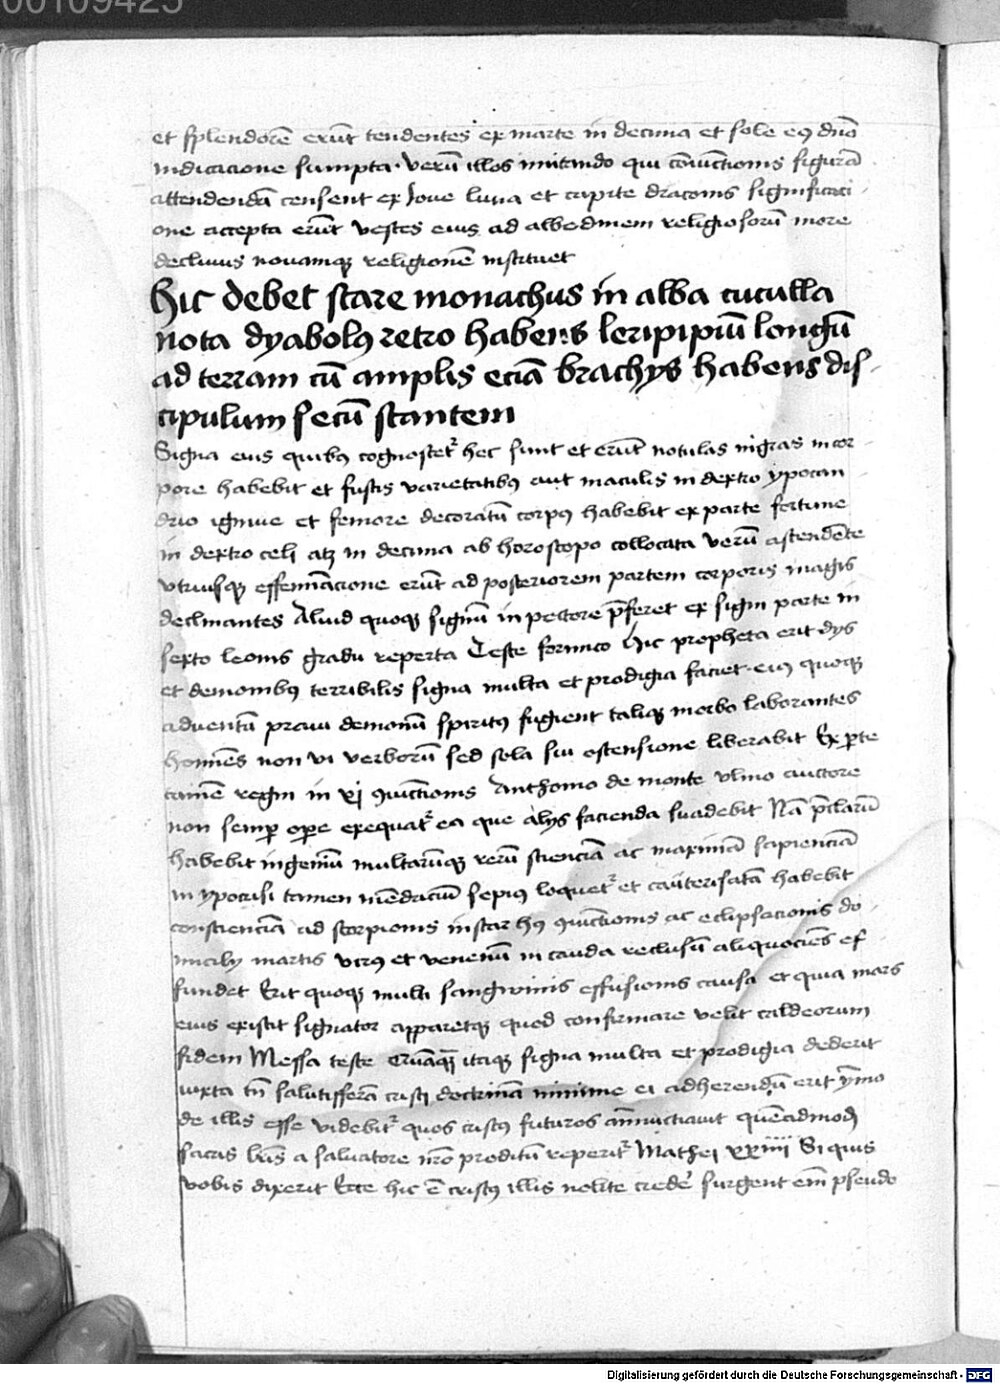 00109425
et splendorē erūt tendentes ex marte in decima et sole eq dnō
indicacione sumpta · verū illos imitando qui cōiūctionis figurā
attendendā censent ex Joue luna et capite draconis significaci
one accepta erūt vestes eius ad albedinem religiosorū more
decliuus nouamqꝫ religionē instituet
hic debet stare monachus in alba cuculla
nota dyabolꝰ retro habens leripipiū longū
ad terram cū amplis eciā brachys habens dis
cipulum secū stantem
Signa eius quibꝰ cognoscetʳ hec sunt et erūt notulas nigras in cor
pore habebit et fustis varietatibꝰ aut maculis in dextro ypocan
drio igniue et femore decoratū corpꝰ habebit ex parte fortune
in dextro celi atqꝫ in decima ab horoscopo collocata verū ascendēte
vtriusqꝫ effeminacione erūt ad posteriorem partem corporis magis
declinantes Aliud quoqꝫ signū in pectore p̄feret ex signi parte in
sexto leonis gradu reperta Teste formico Hic propheta erit dys
et demonibꝰ terribilis signa multa et prodigia faciet · eiꝰ quoqꝫ
aduentū praui demonū spiritꝰ fugient taliqꝫ morbo laborantes
homīes non vi verborū sed sola sui ostensione liberabit Ex pte
tamē regni in xj ꝯiūctionis Anthonio de monte vlmo auctore
non semꝑ oꝑe exequatʳ ea que alys facienda suadebit Nā p̄clarū
habebit ingeniū multarūqꝫ rerū scienciā ac maximā sapienciā
in ypocrisi tamen mēdaciū sepius loquetʳ et cauterisatā habebit
conscienciā ad scorpionis instar hꝰ ꝯiūctionis ac eclipsacionis do
micily martis virꝰ et venenū in cauda reclusū aliquociēs ef
fundet Erit quoqꝫ multi sangwinis effusionis causa et quia mars
eius existit signator apparetqꝫ quod confirmare velit caldeorum
fidem Messa teste Quāqꝫ itaqꝫ signa multa et prodigia dederit
iuxta tn̄ salutifferā cristi doctrinā minime ei adherendū erit ymo
de illis esse videbitʳ quos cristꝰ futuros ānūctiauit quēadmodū
sacris lr̄is a saluatore nr̄o proditū reperitʳ Mathei xxiiij Si quis
vobis dixerit Ecce hic ē cristꝰ illis nolite credē surgent em̄ pseudo
Digitalisierung gefördert durch die Deutsche Forschungsgemeinschaft - DFG